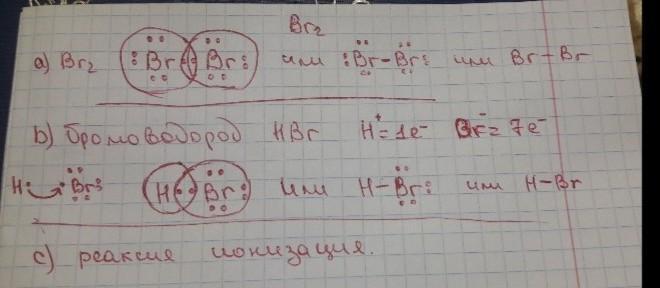 Br2
a) Br2 :Br:Br: или :Br-Br: или Br-Br
b) бромоводород HBr H⁺=1e⁻ Br⁻=7e⁻
H· ·Br: H:Br: или H-Br: или H-Br
c) реаксия ионизация.